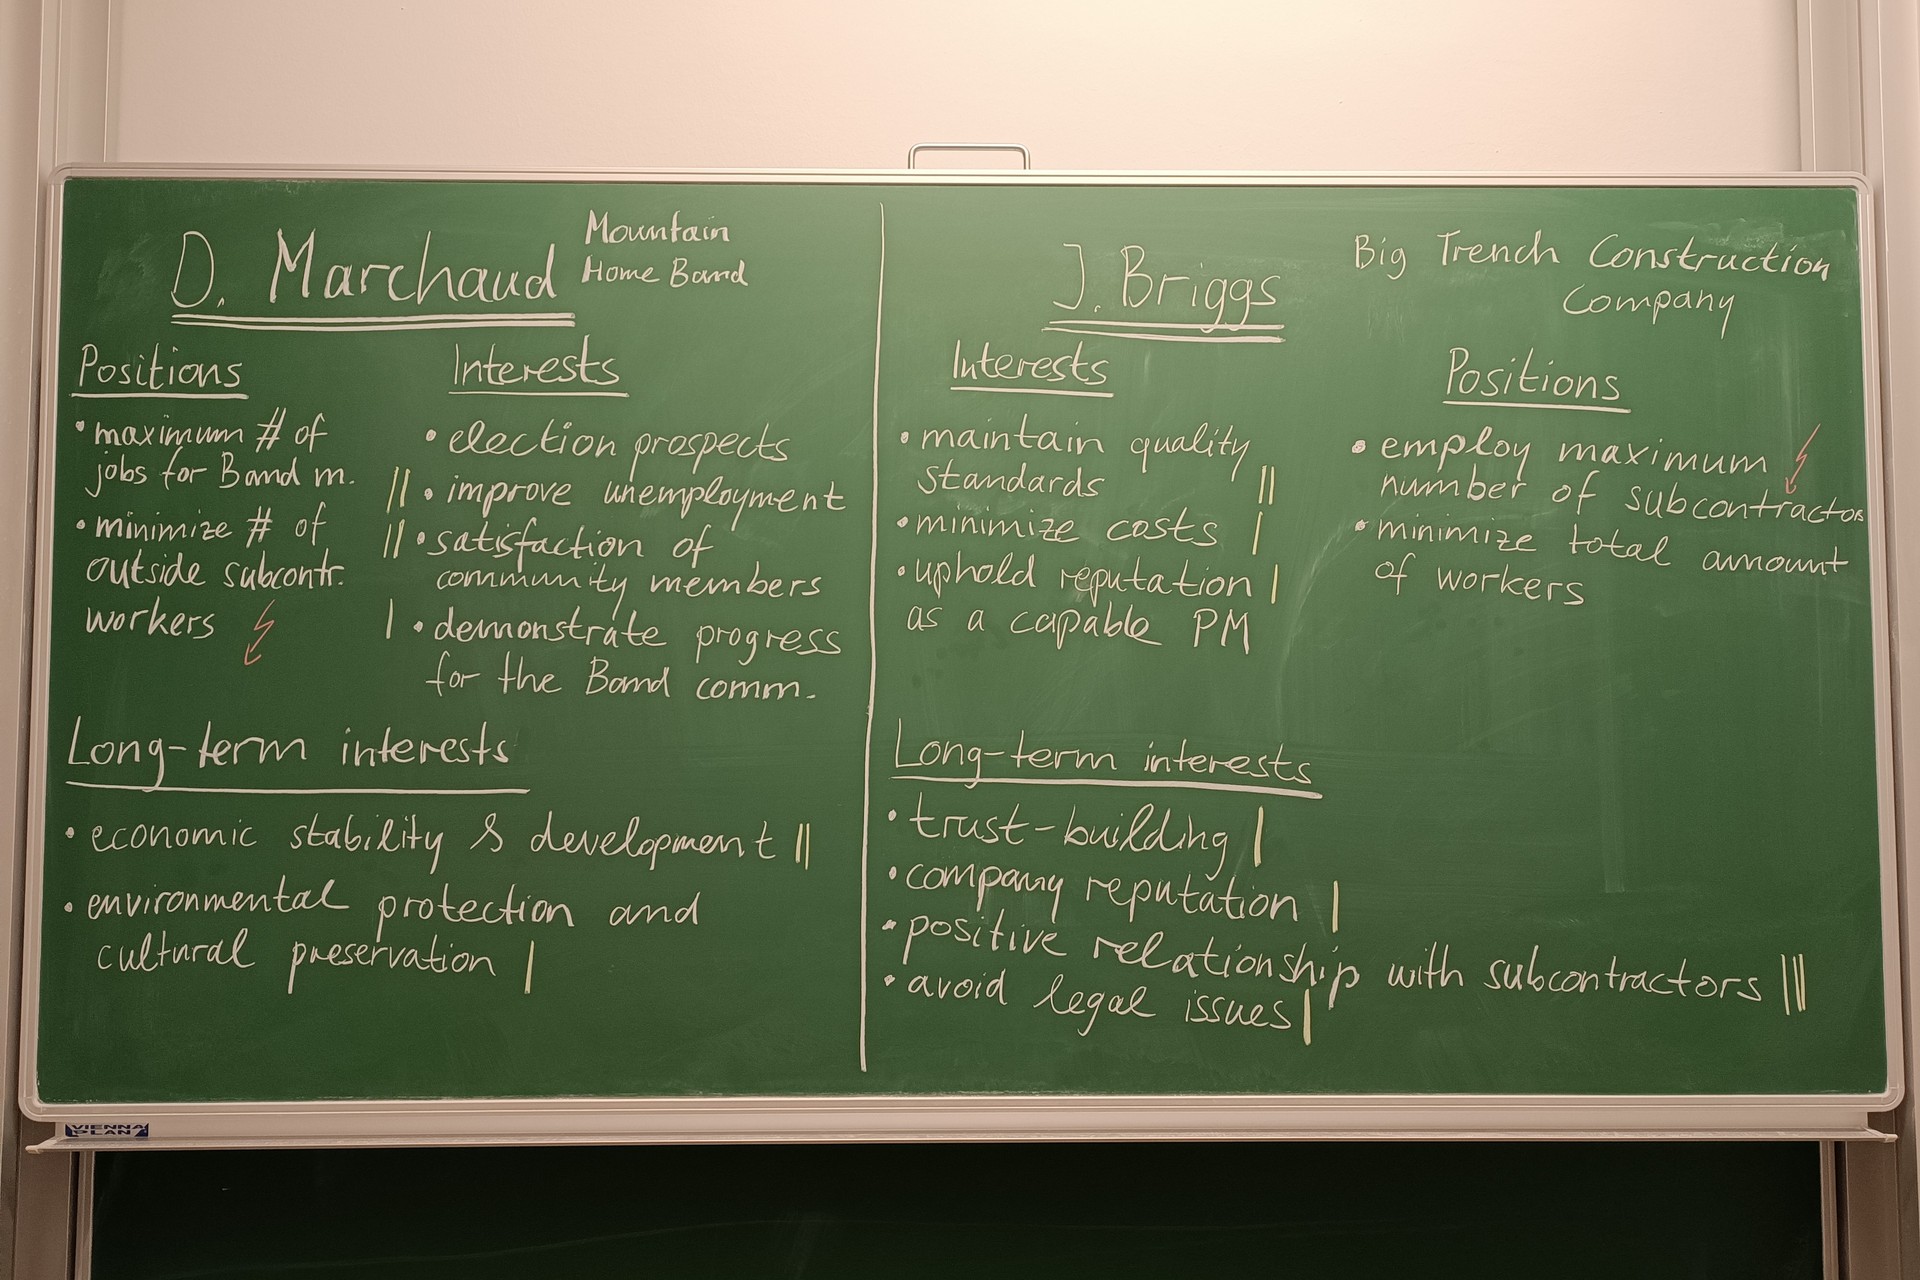 D. Marchaud
Mountain
Home Band
Positions
• maximum # of
jobs for Band m.
• minimize # of
outside subcontr.
workers
Interests
• election prospects
|| • improve unemployment
|| • satisfaction of
community members
| • demonstrate progress
for the Band comm.
Long-term interests
• economic stability & development ||
• environmental protection and
cultural preservation |
J. Briggs
Big Trench Construction
Company
Interests
• maintain quality
standards ||
• minimize costs |
• uphold reputation |
as a capable PM
Positions
• employ maximum
number of subcontractors
• minimize total amount
of workers
Long-term interests
• trust-building |
• company reputation |
• positive relationship with subcontractors |||
• avoid legal issues |
VIENNA
PLAN